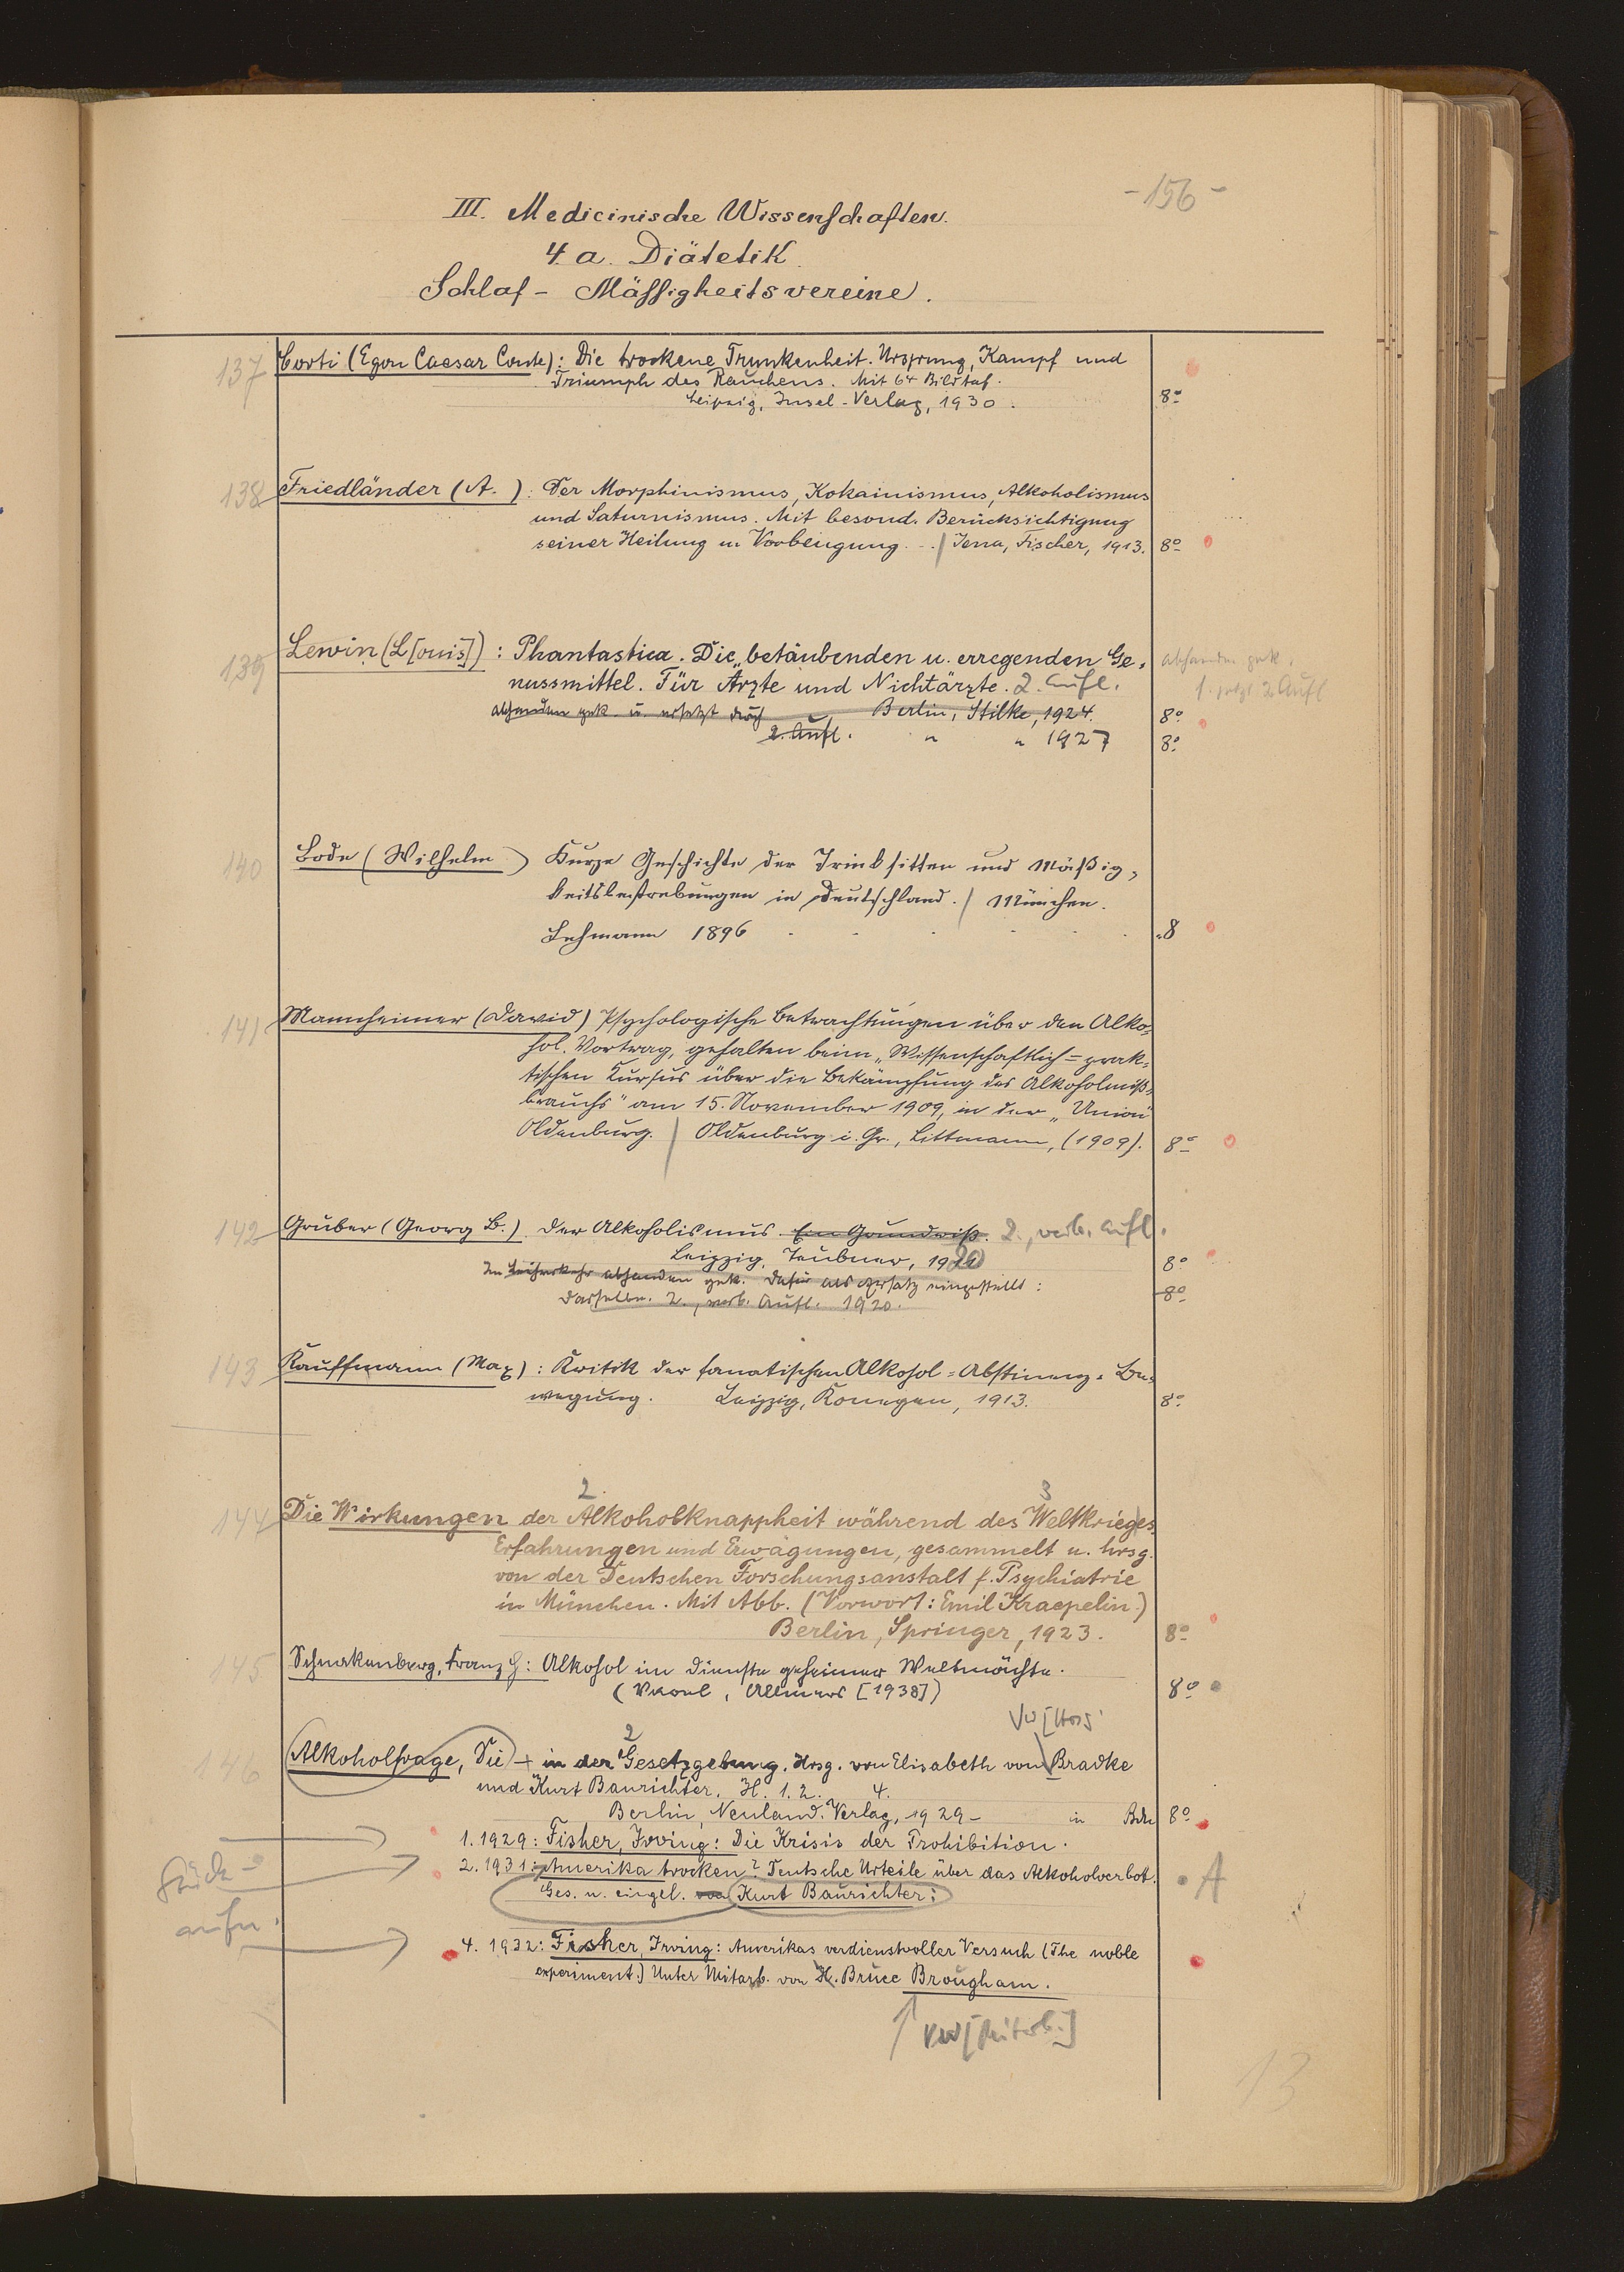 - 156 -
III. Medicinische Wissenschaften.
4. a. Diätetik.
Schlaf - Mässigkeitsvereine.
137 Corti (Egon Caesar Conte): Die trockene Trunkenheit. Ursprung, Kampf und
Triumph des Rauchens. Mit 64 Bildtaf.
Leipzig, Insel-Verlag, 1930. 8°
138 Friedländer (A. ): Der Morphinismus, Kokainismus, Alkoholismus
und Saturnismus. Mit besond. Berücksichtigung
seiner Heilung u. Vorbeugung... / Jena, Fischer, 1913. 8°
139 Lewin (L[ouis]): Phantastica. Die betäubenden u. erregenden Ge-
abhanden gek.
nussmittel. Für Ärzte und Nichtärzte. 2. Aufl.
2 Aufl
abhanden gek. u. ersetzt durch Berlin, Stilke, 1924. 8°
2. Aufl. " " 1927 8°
140 Bode (Wilhelm ) Kurze Geschichte der Trinksitten und Mäßig-
keitsbestrebungen in Deutschland. / München.
Lehmann 1896 8
141 Mannheimer (David) Psychologische Betrachtungen über den Alko-
hol. Vortrag, gehalten beim „Wissenschaftlich-prak-
tischen Kursus über die Bekämpfung des Alkoholmiß-
brauchs" am 15. November 1909, in der „Union"
Oldenburg. / Oldenburg i. Gr., Littmann, (1909). 8°
142 Gruber (Georg B.). Der Alkoholismus. Ein Grundriß. 2., verb. Aufl.
Leipzig, Teubner, 1920 8°
Im Leihverkehr abhanden gek. Dafür als Ersatz eingestellt:
Dasselbe. 2., verb. Aufl. 1920. 8°
143 Kauffmann (Max): Kritik der fanatischen Alkohol-Abstinenz-Be-
wegung. Leipzig, Konegen, 1913. 8°
2. 3
144 Die Wirkungen der Alkoholknappheit während des Weltkrieges.
Erfahrungen und Erwägungen, gesammelt u. hrsg.
von der Deutschen Forschungsanstalt f. Psychiatrie
in München. Mit Abb. (Vorwort: Emil Kraepelin.)
Berlin, Springer, 1923. 8°
145 Schnakenberg, Franz G: Alkohol im Dienste geheimer Weltmächte.
(Varel, Allmers [1938]) 8°
2
146 Alkoholfrage, Die + in der Gesetzgebung. Hrsg. von Elisabeth von Bradke
und Kurt Baurichter. H. 1. 2. 4.
Berlin, Neuland-Verlag, 1929- in Bdn 8°
1. 1929: Fisher, Irving: Die Krisis der Prohibition.
2. 1931: Amerika trocken? Deutsche Urteile über das Alkoholverbot. A
Ges. u. eingel. von Kurt Baurichter:
aufn.
4. 1932: Fisher, Irving: Amerikas verdienstvoller Versuch (The noble
experiment.) Unter Mitarb. von H. Bruce Brougham.
VW [Mitarb.]
13